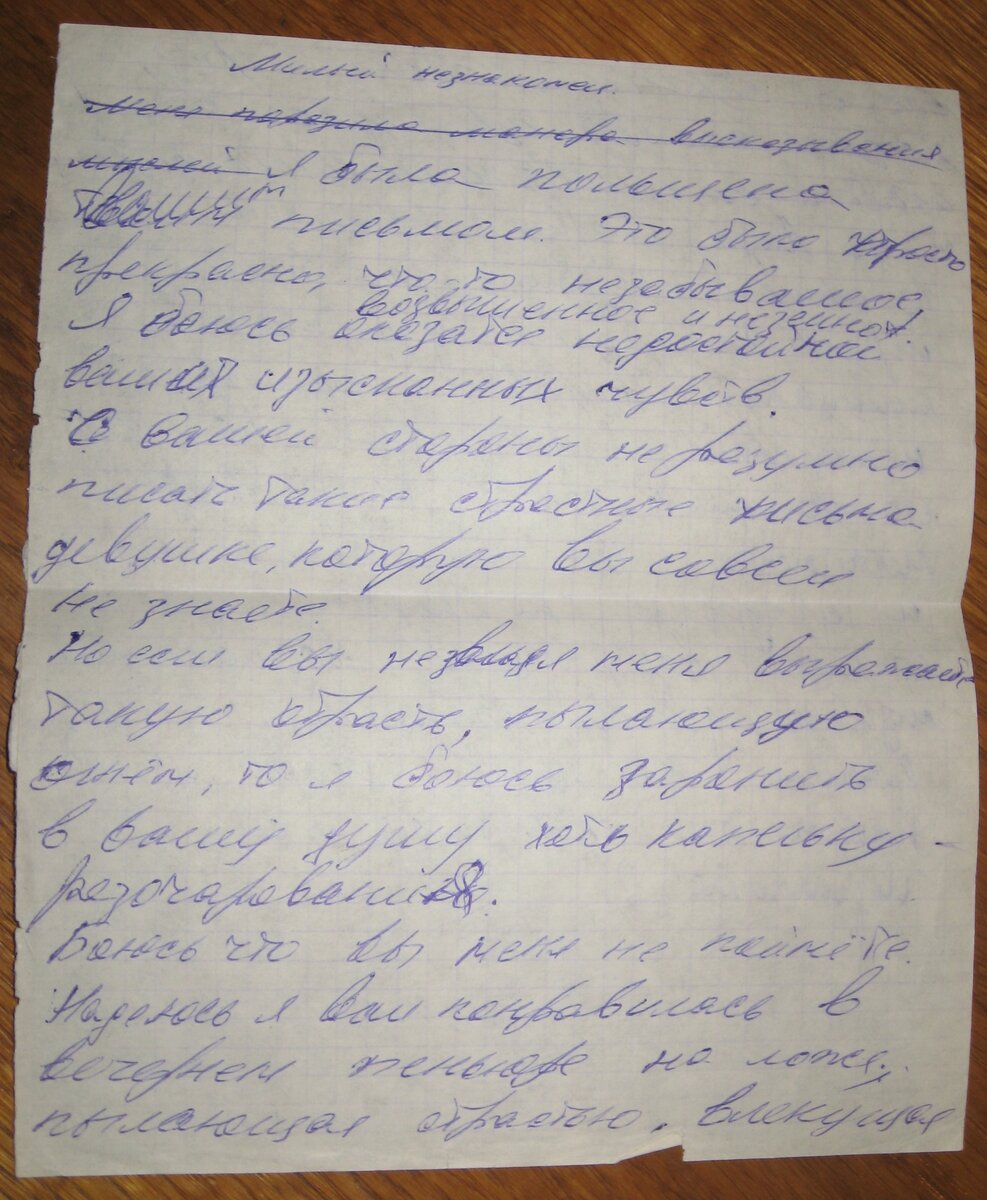 Милый незнакомец.
Меня поразила манера высказывания
мыслей Я была польщена
Вашим письмом. Это было просто
прекрасно, что то незабываемое,
возвышенное и неземное!
Я боюсь оказатся недостойной
ваших изысканных чувств.
С вашей стороны неразумно
писать такие страстные письма
девушке, которую вы совсем
не знаете.
Но если вы не зная меня выражаете
такую страсть, пылающую
огнём, то я боюсь заронить
в вашу душу хоть капельку
разочарования.
Боюсь что вы меня не поймёте.
Надеюсь я вам понравилась в
вечернем пеньюаре на ложе,
пылающая страстью, влекущая